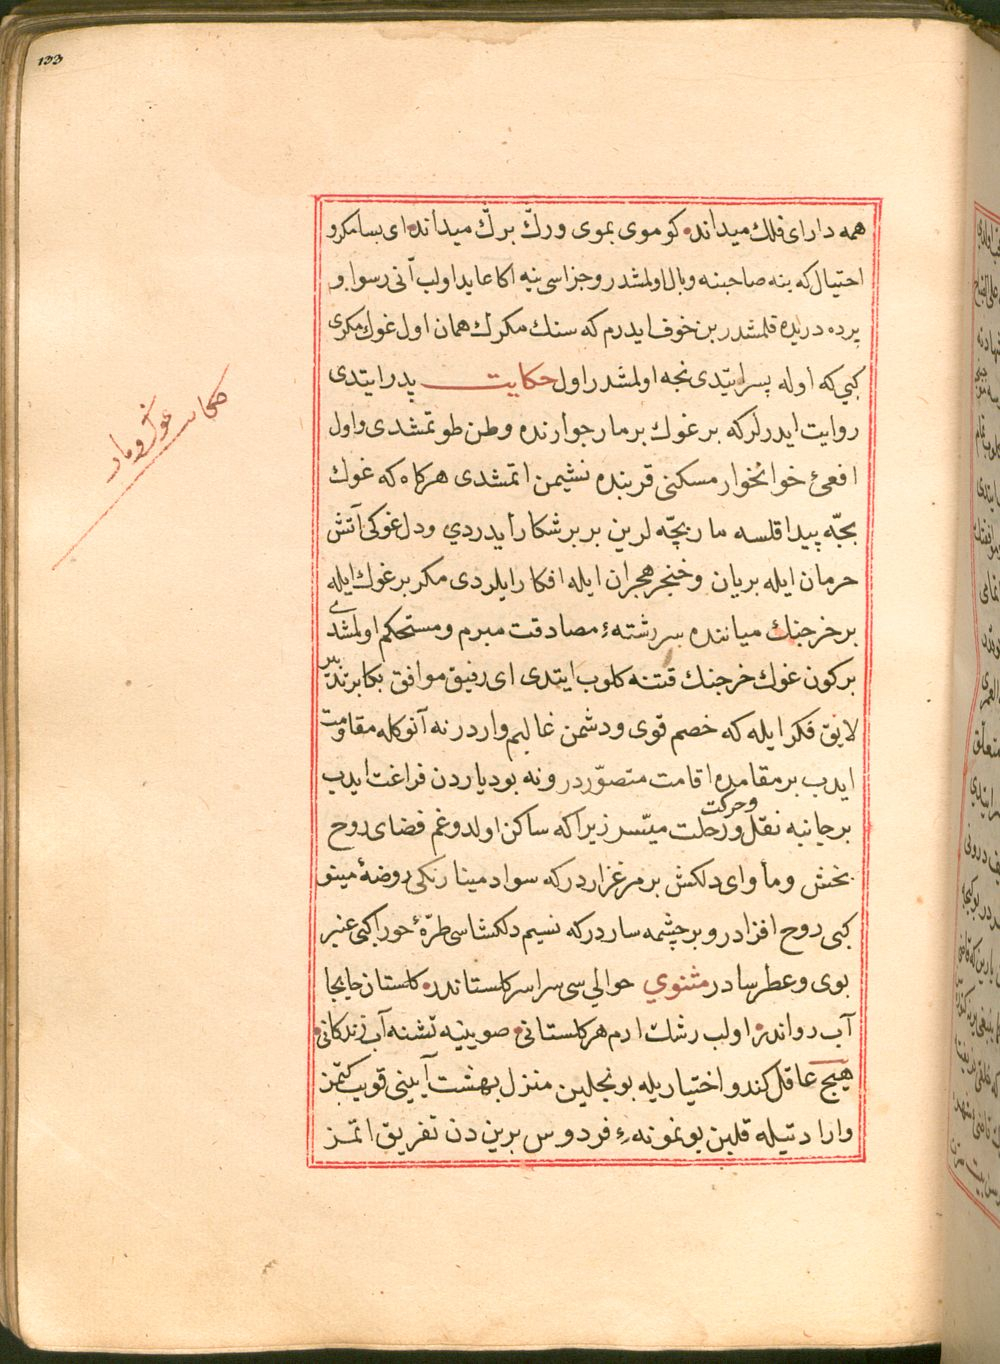 133
همه دارای فلك میداند كو موی بموی ورك برك میداند ای بسا مكر و
احتیال كه ینه صاحبنه وبال اولمشدر وجزاسی ینه اكا عاید اولب آنی رسوا و
پرده دریده قلمشدر بن خوف ایدرم كه سنك مكرك همان اول غوك مكری
كبی كه اوله پسر ایتدی نجه اولمشدر اول حكایت پدر ایتدی
روایت ایدرلر كه بر غوك بر مار جوارنده وطن طوتمشدی واول
افعئ خوانخوار مسكنی قربنده نشیمن اتمشدی هركاه كه غوك
بچّه پیدا قلسه مار بچّه لرین بر بر شكار ایدردی ودل غوكی آتش
حرمان ایله بریان وخنجر هجران ایله افكار ایلردی مكر بر غوك ایله
بر خرجنك میاننده سررشتهٔ مصادقت مبرم ومستحكم اولمشدی
بركون غوك خرجنك قتنه كلوب ایتدی ای رفیق موافق بكا بر تدبیر
لایق فكر ایله كه خصم قوی ودشمن غالبم واردر نه آنوكله مقاومت
ایدب بر مقامده اقامت متصوّردر ونه بو دیاردن فراغت ایدب
بر جانبه نقل ورحلت وحركت میسّر زیرا كه ساكن اولدوغم فضای روح
بخش ومأوای دلكش بر مرغزاردر كه سواد مینا رنكی روضهٔ مینو
كبی روح افزادر وبر چشمه ساردر كه نسیم دلكشاسی طرّهٔ حورا كبی عنبر
بوی وعطر سادر مثنوی حوالی سی سراسر كلستاندر كلستان جابجا
آب رواندر اولب رشك ارم هر كلستانی صوینه تشنه آب زندكانی
هیچ عاقل كندو اختیاریله بونجلین منزل بهشت آیینی قویب كتمز
وارادتیله قلبن بو نمونهٔ فردوس بریندن تفریق اتمز
حكایت غوك ومار